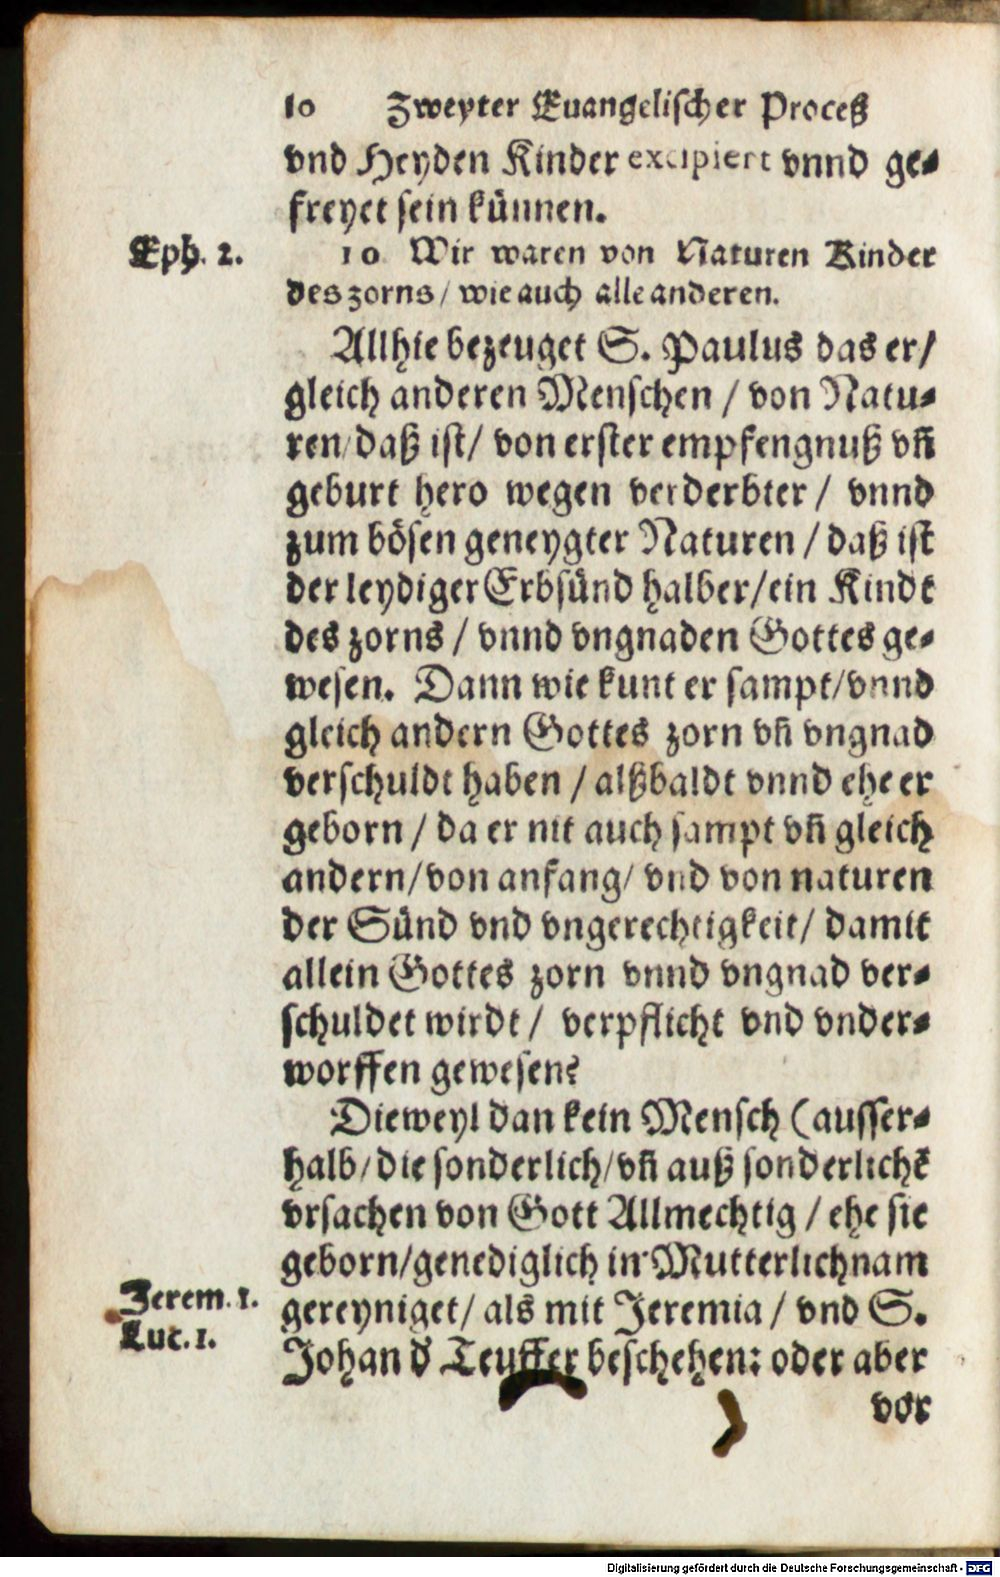 10 Zweyter Euangelischer Proceß
vnd Heyden Kinder excipiert vnnd ge-
freyet sein künnen.
Eph. 2.
10 Wir waren von Naturen Kinder
des zorns / wie auch alle anderen.
Allhie bezeuget S. Paulus das er /
gleich anderen Menschen / von Natu-
ren / daß ist / von erster empfengnuß vñ
geburt hero wegen verderbter / vnnd
zum bösen geneygter Naturen / daß ist
der leydiger Erbsünd halber / ein Kindt
des zorns / vnnd vngnaden Gottes ge-
wesen. Dann wie kunt er sampt / vnnd
gleich andern Gottes zorn vñ vngnad
verschuldt haben / alßbaldt vnnd ehe er
geborn / da er nit auch sampt vñ gleich
andern / von anfang / vnd von naturen
der Sünd vnd vngerechtigkeit / damit
allein Gottes zorn vnnd vngnad ver-
schuldet wirdt / verpflicht vnd vnder-
worffen gewesen?
Dieweyl dan kein Mensch (ausser-
halb / die sonderlich / vñ auß sonderlichē
vrsachen von Gott Allmechtig / ehe sie
geborn / genediglich in Mutterlichnam
Jerem. 1.
gereyniget / als mit Jeremia / vnd S.
Luc. 1.
Johan d̓ Teuffer beschehen: oder aber
vor
Digitalisierung gefördert durch die Deutsche Forschungsgemeinschaft - DFG